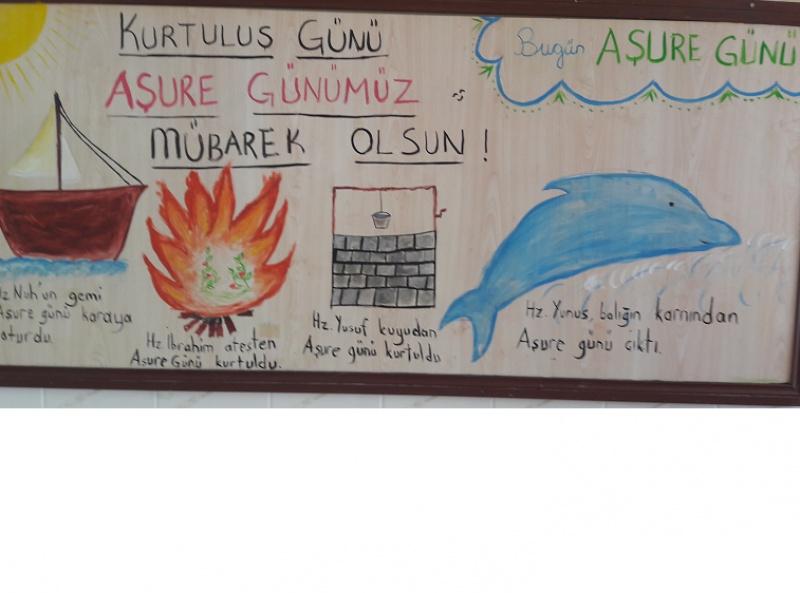 KURTULUŞ GÜNÜ
AŞURE GÜNÜMÜZ
MÜBAREK OLSUN !
Bugün AŞURE GÜNÜ
Hz Nuh'un gemi
Aşure günü karaya
oturdu.
Hz İbrahim ateşten
Aşure Günü kurtuldu.
Hz. Yusuf kuyudan
Aşure günü kurtuldu
Hz. Yunus, balığın karnından
Aşure günü çıktı.